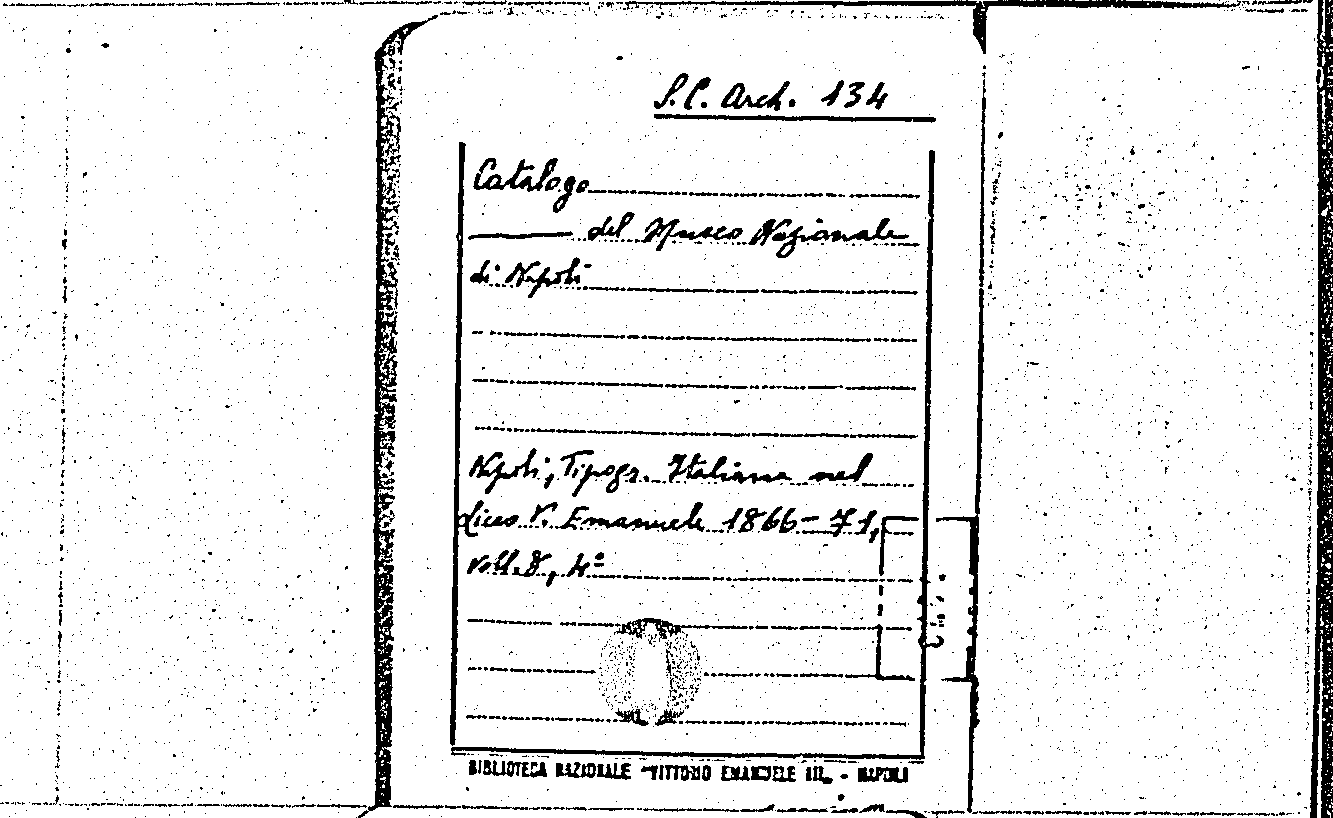 S.C. Arch. 134
Catalogo
—— del Museo Nazionale
di Napoli
Napoli, Tipogr. Italiana nel
Liceo V. Emanuele 1866-71,
voll. 8, 4º
BIBLIOTECA NAZIONALE "VITTORIO EMANUELE III" - NAPOLI